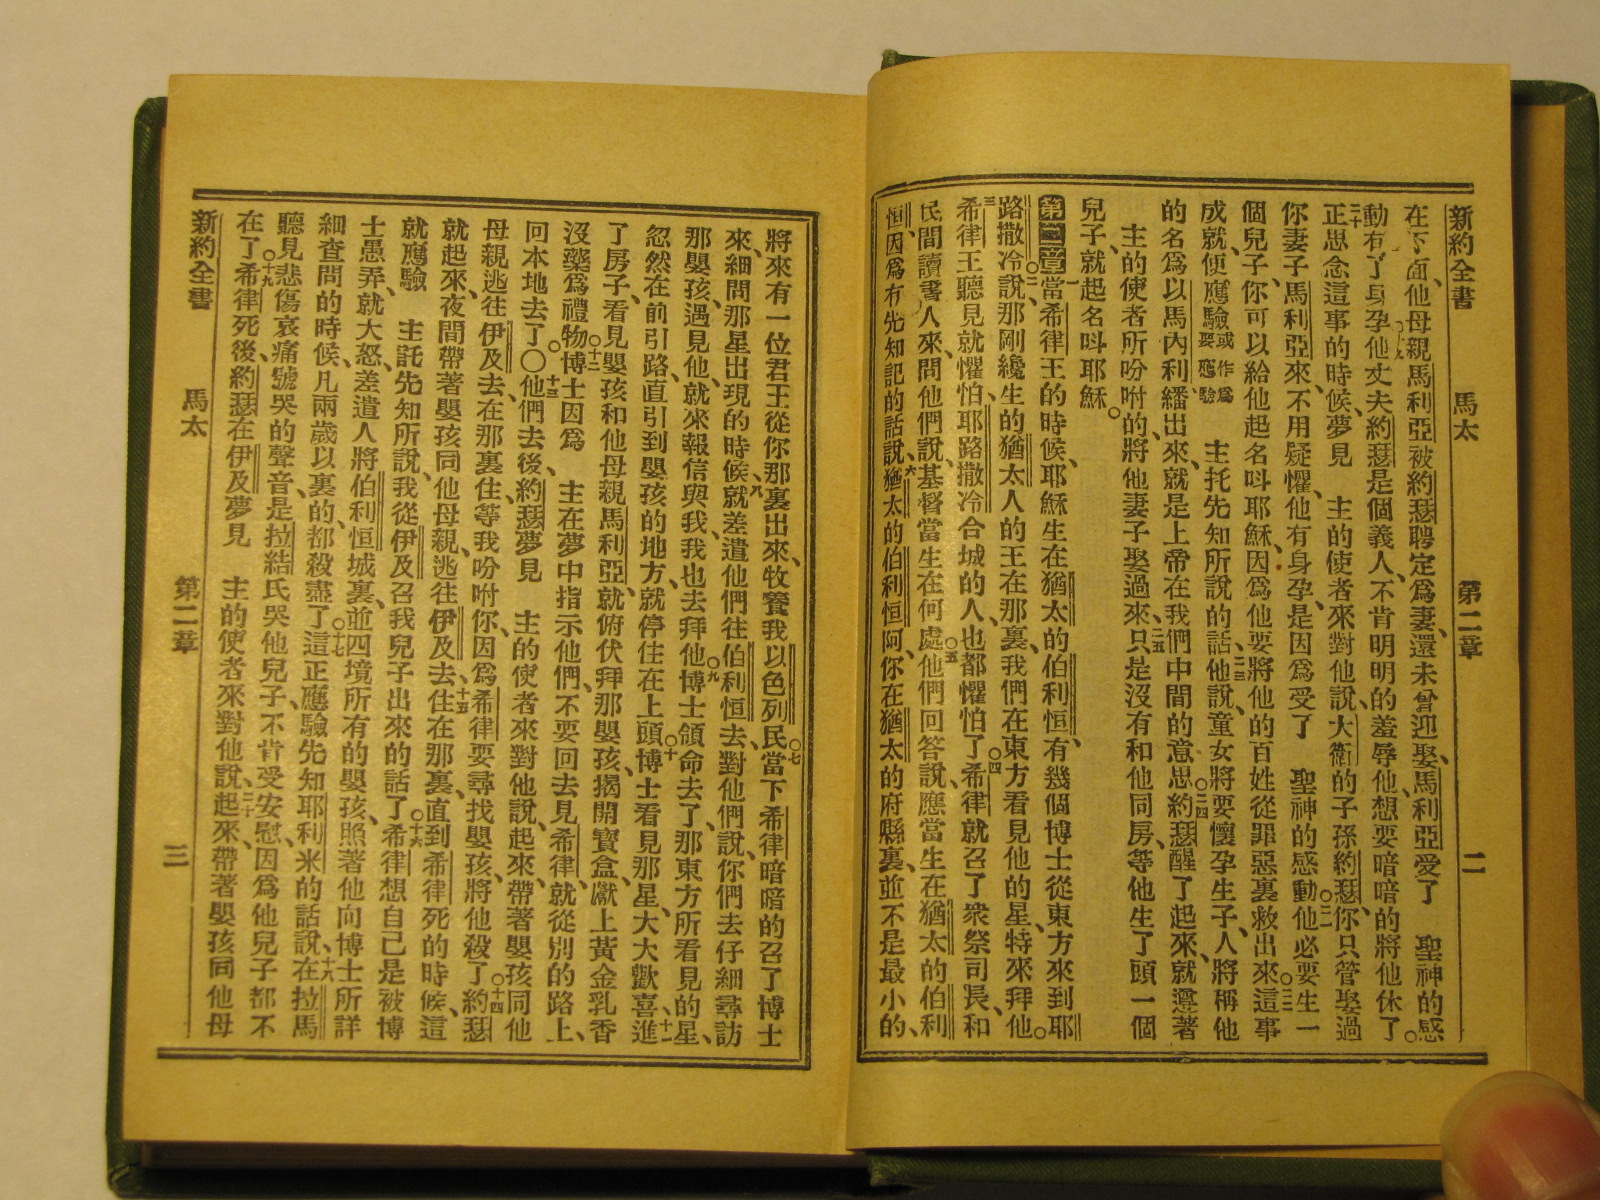 新約全書 馬太 第二章 二
在下面他母親馬利亞被約瑟聘定爲妻、還未曾迎娶、馬利亞受了 聖神的感
動有了身孕。十九他丈夫約瑟是個義人、不肯明明的羞辱他、想要暗暗的將他休了。
二十正思念這事的時候、夢見 主的使者來對他說、大衛的子孫約瑟、你只管娶過
你妻子馬利亞來、不用疑懼、他有身孕、是因爲受了 聖神的感動。二一他必要生一
個兒子、你可以給他起名呌耶穌、因爲他要將他的百姓從罪惡裏救出來。二二這事
成就、便應驗或作爲要應驗 主托先知所說的話、二三他說、童女將要懷孕生子、人將稱他
的名爲以馬內利、繙出來、就是上帝在我們中間的意思。二四約瑟醒了起來、就遵著
主的使者所吩咐的、將他妻子娶過來、二五只是沒有和他同房、等他生了頭一個
兒子、就起名呌耶穌。
第二章 一當希律王的時候、耶穌生在猶太的伯利恒、有幾個博士從東方來到耶
路撒冷、二說、那剛纔生的猶太人的王在那裏、我們在東方看見他的星、特來拜他。
三希律王聽見就懼怕、耶路撒冷合城的人、也都懼怕了。四希律就召了衆祭司長、和
民間讀書人來、問他們說、基督當生在何處。五他們回答說、應當生在猶太的伯利
恒、因爲有先知記的話說、六猶太的伯利恒阿、你在猶太的府縣裏、並不是最小的、
將來有一位君王從你那裏出來、牧養我以色列民。七當下希律暗暗的召了博士
來、細問那星出現的時候、八就差遣他們往伯利恒去、對他們說、你們去仔細尋訪
那嬰孩、遇見他、就來報信與我、我也去拜他。九博士領命去了、那東方所看見的星、
忽然在前引路、直引到嬰孩的地方、就停住在上頭。十博士看見那星、大大歡喜、十一進
了房子、看見嬰孩和他母親馬利亞、就俯伏拜那嬰孩、揭開寶盒、獻上黃金乳香
沒藥爲禮物。十二博士因爲 主在夢中指示他們、不要回去見希律、就從別的路上、
回本地去了。〇十三他們去後、約瑟夢見 主的使者來對他說、起來、帶著嬰孩同他
母親逃往伊及去、在那裏住、等我吩咐你、因爲希律要尋找嬰孩、將他殺了。十四約瑟
就起來、夜間帶著嬰孩同他母親、逃往伊及去、十五住在那裏、直到希律死的時候、這
就應驗 主託先知所說、我從伊及召我兒子出來的話了。十六希律想自己是被博
士愚弄、就大怒、差遣人將伯利恒城裏、並四境所有的嬰孩、照著他向博士所詳
細查問的時候、凡兩歲以裏的、都殺盡了。十七這正應驗先知耶利米的話說、十八在拉馬
聽見悲傷哀痛號哭的聲音、是拉結氏哭他兒子、不肯受安慰、因爲他兒子都不
在了。十九希律死後、約瑟在伊及夢見 主的使者來對他說、二十起來、帶著嬰孩同他母
新約全書 馬太 第二章 三